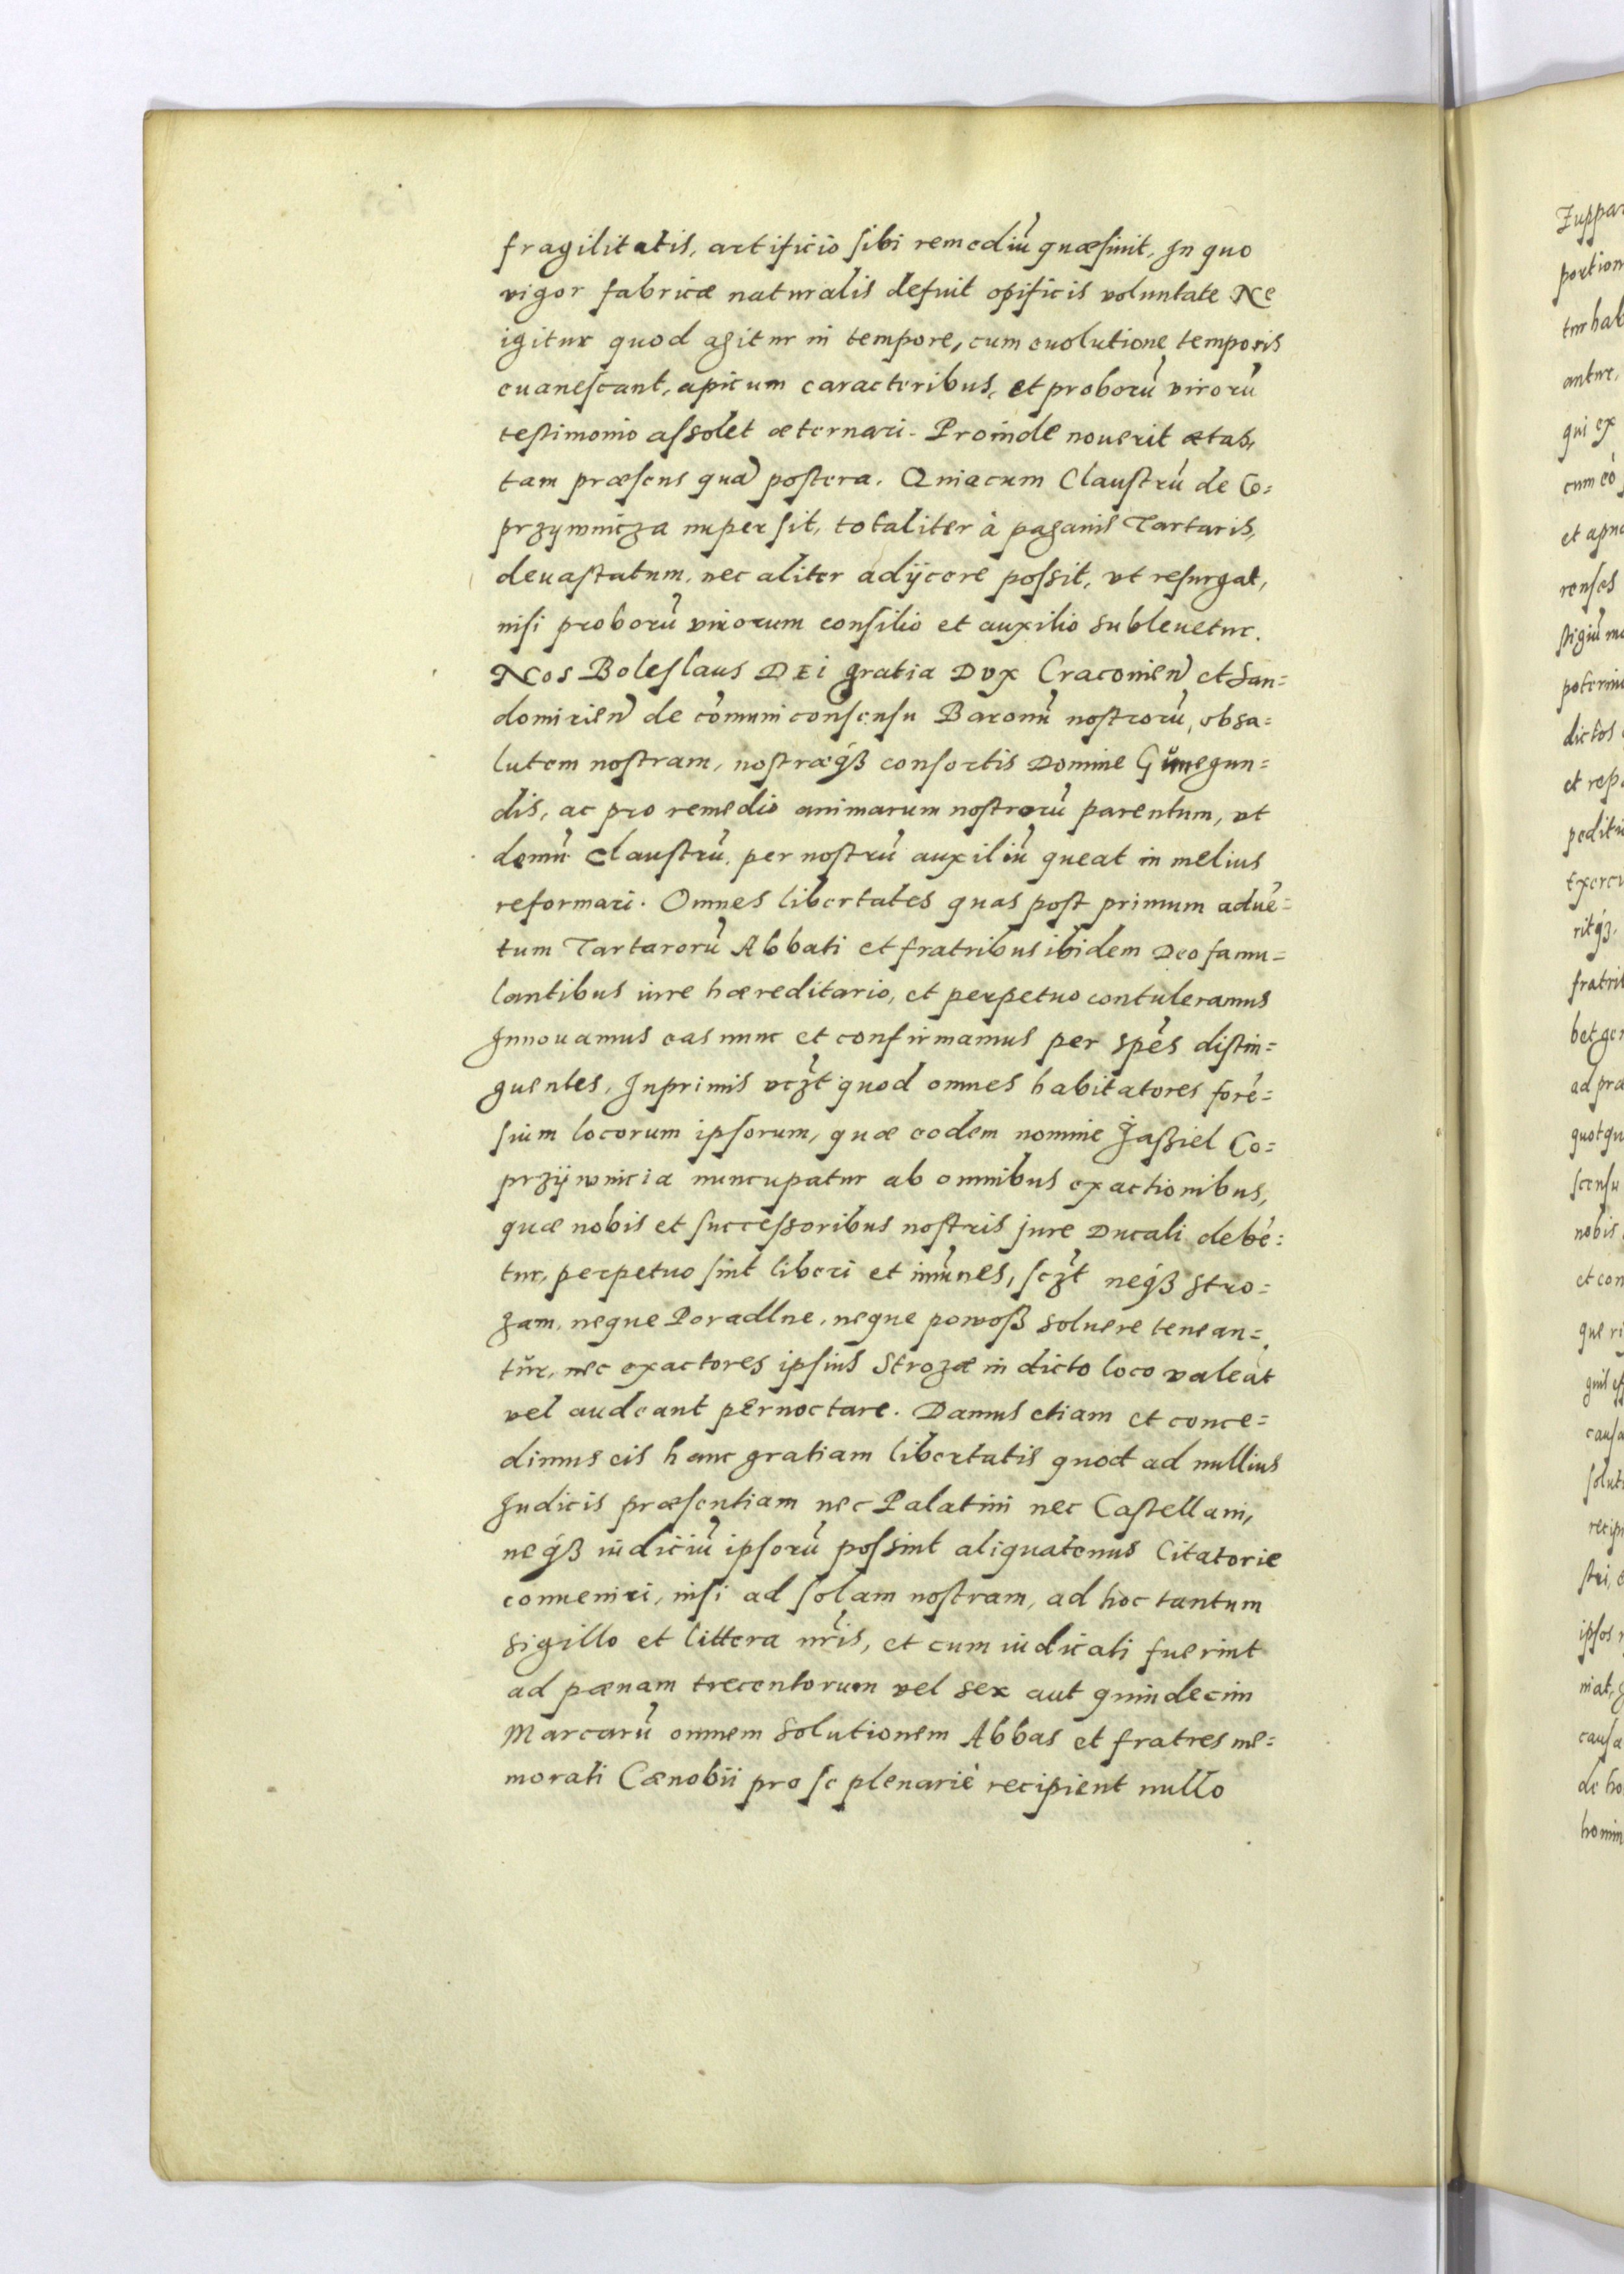 fragilitatis, artificio sibi remediũ quæsiuit, In quo
vigor fabricæ naturalis defuit opificis voluntate Ne
igitur quod agitur in tempore, cum euolutione temporis
euanescant, apicum caracteribus, et proborũ virorũ
testimonio assolet æternari. Proinde nouerit ætas,
tam præsens quã postera. Quia cum Claustrũ de Co=
przywnicza nuper sit, totaliter à paganis Tartaris,
deuastatum, nec aliter adijcere possit, vt resurgat,
nisi proborũ virorum consilio et auxilio subleuetur.
Nos Boleslaus DEi gratia Dux Cracouien et San=
domirien de cõmuni consensu Baronũ nostrorũ, ob sa=
lutem nostram, nostræqꝫ consortis Domine Gunegun=
dis, ac pro remedio animarum nostrorũ parentum, vt
domũ Claustrũ, per nostrũ auxiliũ queat in melius
reformari. Omnes libertates quas post primum aduẽ=
tum Tartarorũ Abbati et fratribus ibidem Deo famu=
lantibus iure hæreditario, et perpetuo contuleramus
Innouamus eas nunc et confirmamus per spẽs distin=
guentes, Inprimis vczt quod omnes habitatores forẽ=
sium locorum ipsorum, quæ eodem nomine Jaßiel Co=
przijwnicia nuncupatur ab omnibus exactionibus,
quæ nobis et successoribus nostris jure Ducali debẽ=
tur, perpetuo sint liberi et imũnes, sczt neqꝫ stro=
zam, neque Poradlne, neque powoß soluere tenean=
tur, nec exactores ipsius Strozæ in dicto loco valeãt
vel audeant pernoctare. Damus etiam et conce=
dimus eis hanc gratiam libertatis quod ad nullius
Judicis præsentiam nec Palatini nec Castellani,
neqꝫ iudiciũ ipsorũ possint aliquatenus Citatorie
conueniri, nisi ad solam nostram, ad hoc tantum
sigillo et littera nr̃is, et cum iudicati fuerint
ad pænam trecentorum vel sex aut quindecim
Marcarũ omnem solutionem Abbas et fratres me=
morati Cænobii pro se plenariè recipient nullo